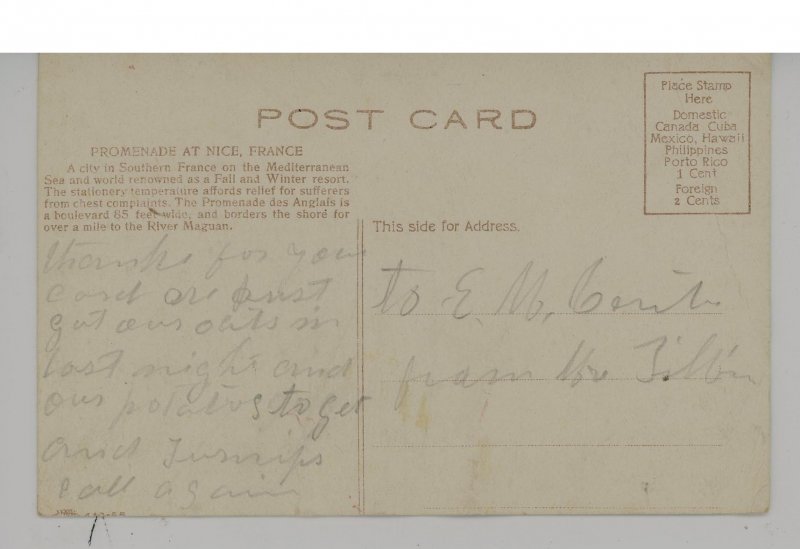 POST CARD
PROMENADE AT NICE, FRANCE
A city in Southern France on the Mediterranean
Sea and world renowned as a Fall and Winter resort.
The stationery temperature affords relief for sufferers
from chest complaints. The Promenade des Anglais is
a boulevard 85 feet wide, and borders the shore for
over a mile to the River Maguan.
Place Stamp
Here
Domestic
Canada Cuba
Mexico, Hawaii
Philippines
Porto Rico
1 Cent
Foreign
2 Cents
This side for Address.
thanks for your
card
got our oats in
last night and
our potatos to get
and Turnips
call again
to E. M.
from